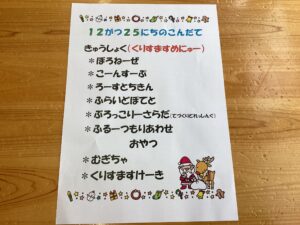 12がつ25にちのこんだて
きゅうしょく(くりすますめにゅー)
＊ぼろねーぜ
＊こーんすーぷ
＊ろーすとちきん
＊ふらいどぽてと
＊ぶろっこりーさらだ(てづくりどれっしんぐ)
＊ふるーつもりあわせ
おやつ
＊むぎちゃ
＊くりすますけーき